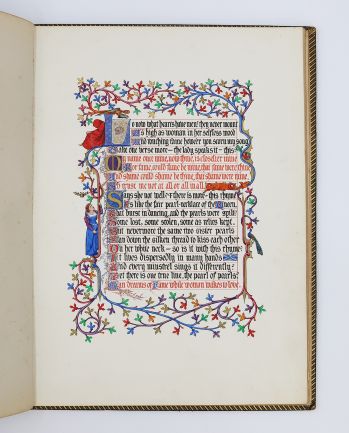 Lo now what hearts have men! they never mount
As high as woman in her selfless mood
And touching fame howe'er you scorn my song
Take one verse more – the lady speaks it – this
My name once mine, now thine, is closelier mine
For fame, could fame be mine, that fame were thine
And shame, could shame be thine, that shame were mine
So trust me not at all or all in all
Says she not well? there is more – this rhyme
Is like the fair pearl necklace of the Queen,
That burst in dancing, and the pearls were spilt;
Some lost, some stolen, some as relics kept.
But nevermore the same two sister pearls
Ran down the silken thread to kiss each other
On her white neck – so is it with this rhyme:
It lives dispersedly in many hands
And every minstrel sings it differently:
Yet there is one true line, the pearl of pearls:
Man dreams of Fame while woman wakes to love.